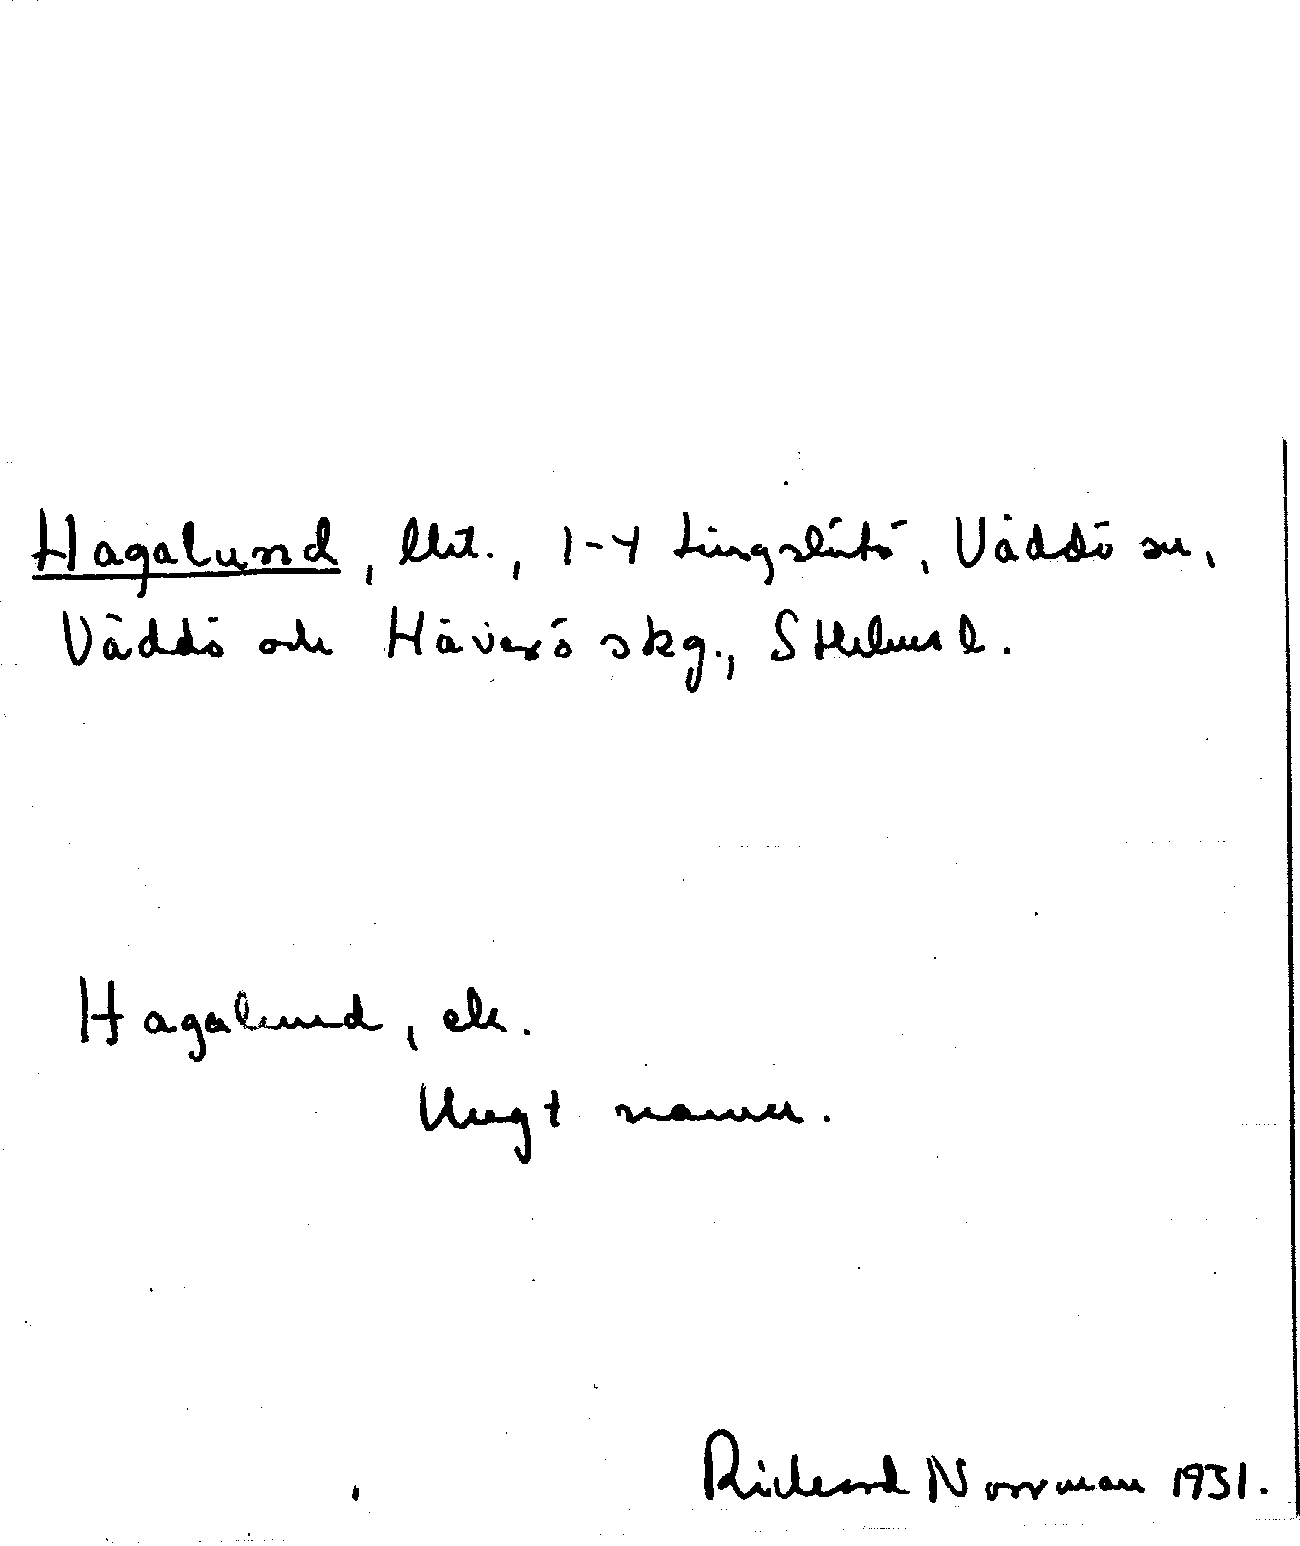 Hagalund, lht., 1-4 Tingslätö, Väddö sn,
Väddö och Häverö skg., Sthlms l.
Hagalund, ek.
Ungt namn.
Rickard Norrman 1931.